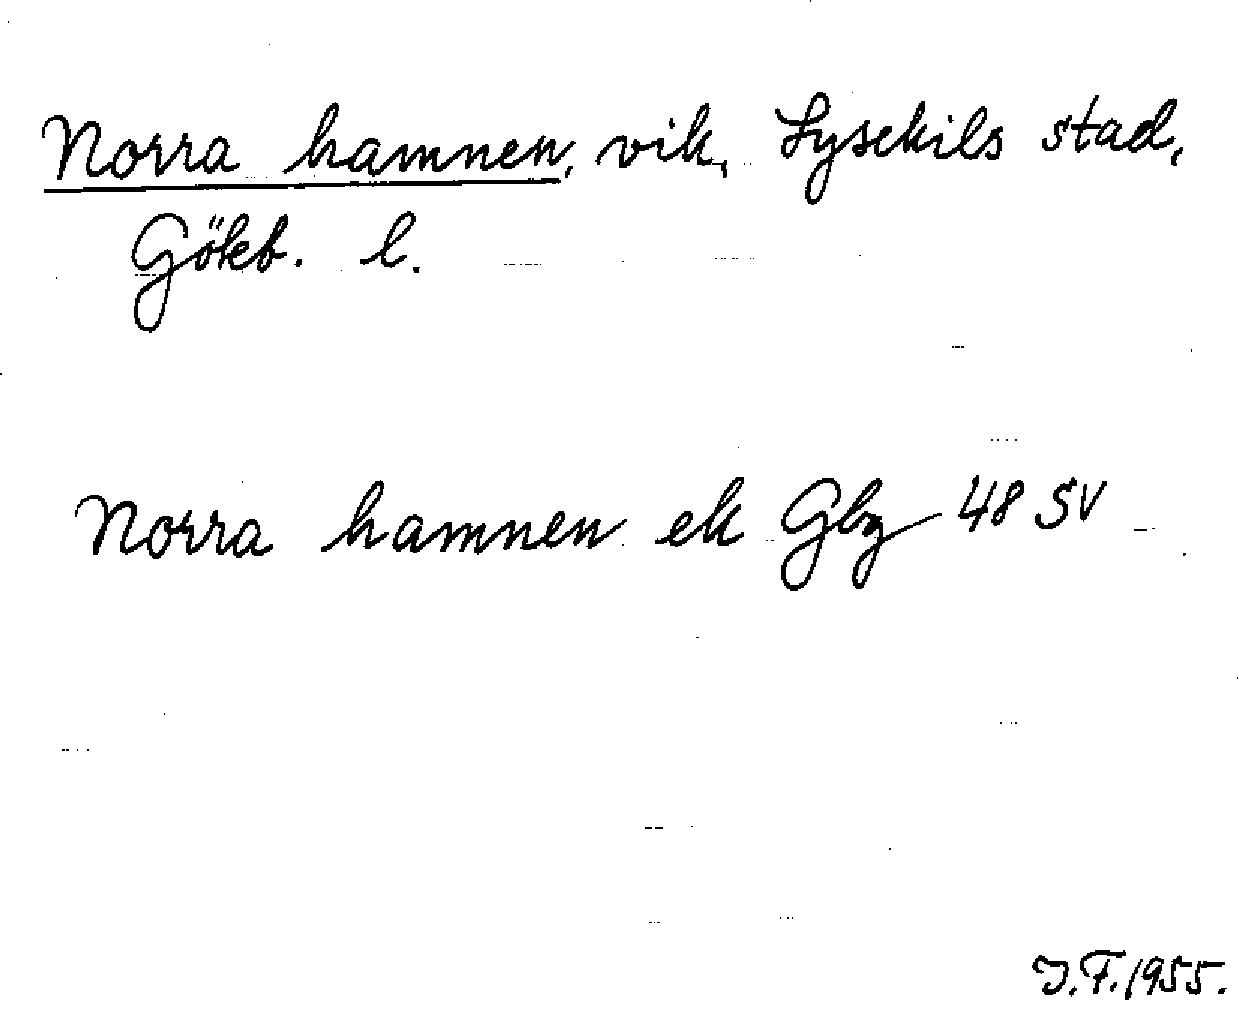 Norra hamnen, vik, Lysekils stad,
Göteb. l.
Norra hamnen ek Gbg 48 SV
J.F. 1955.